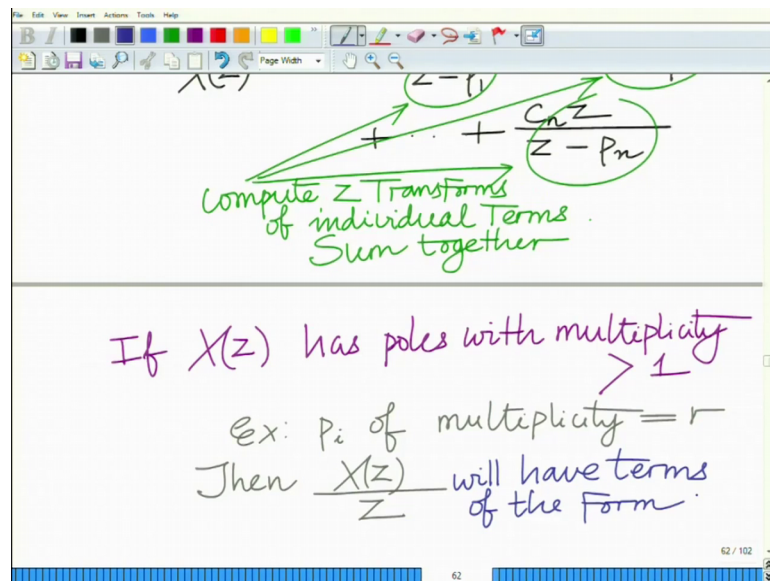 File Edit View Insert Actions Tools Help
B I
Page Width
X(z) z - p₁
+ ·· + cₙ z / z - pₙ
Compute z Transforms
of individual Terms.
Sum together
If X(z) has poles with multiplicity
> 1
Ex: pᵢ of multiplicity = r
Then X(z)/z will have terms
of the Form.
62 / 102
62